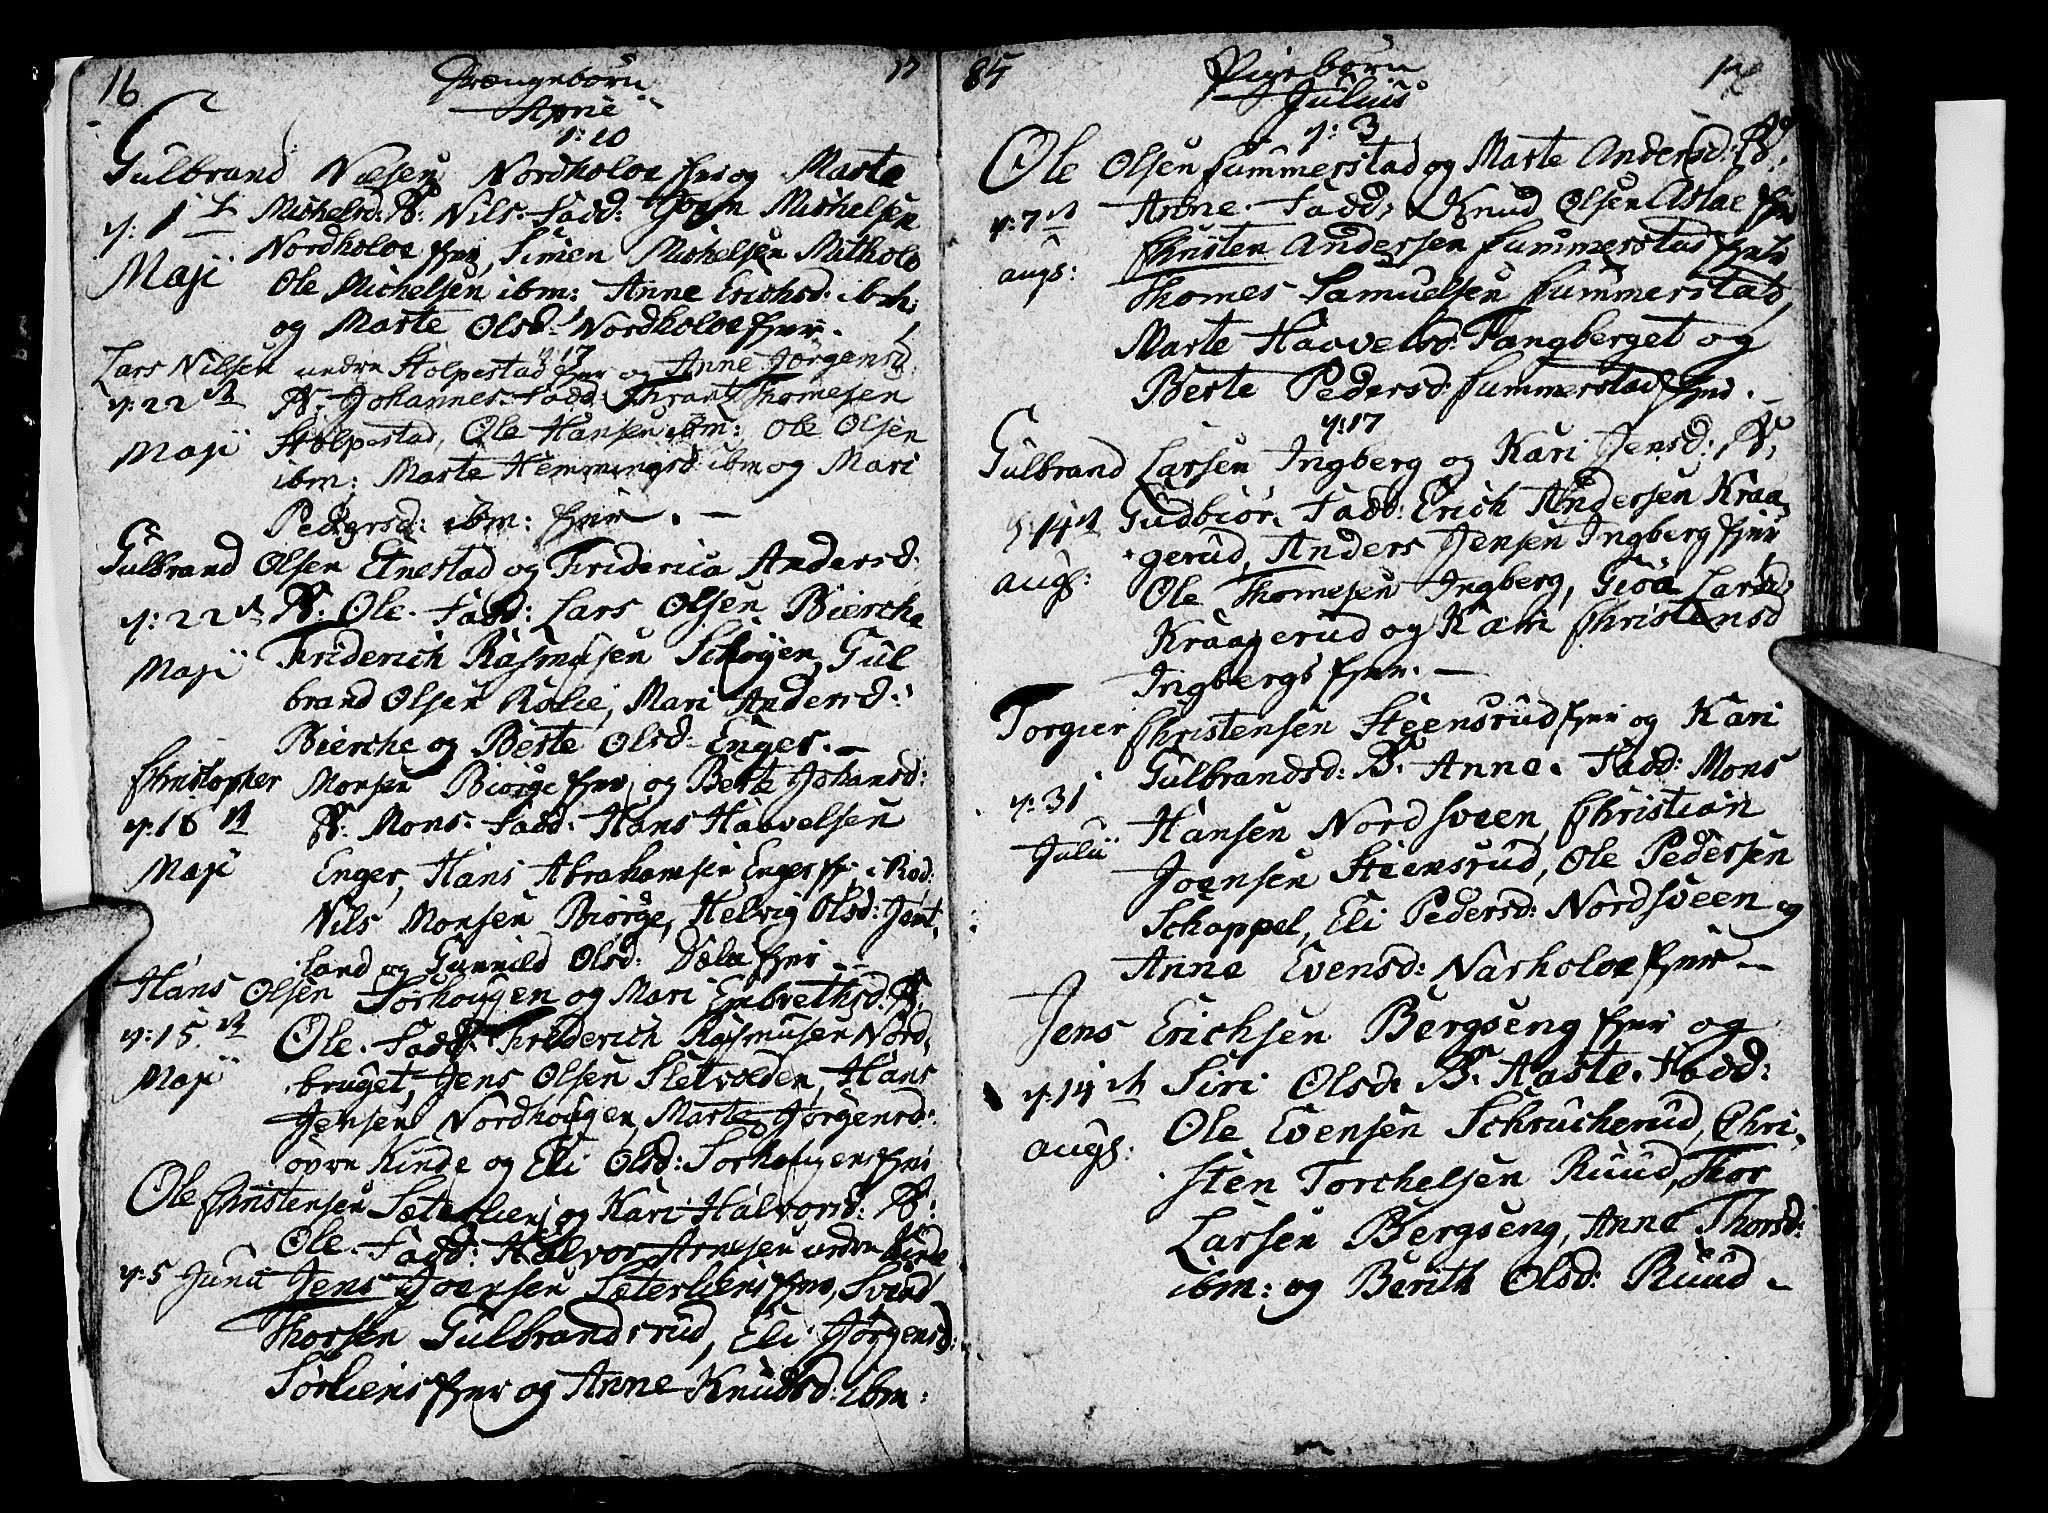 16 Drængebørn 17
April
d: 10
Gulbrand Nilsen Nordholoe Eyer og Marte
d: 1st Michelsd: B: Nils. Fadd: Michelsen
Maji Nordholoe Eyer, Simen Michelsen
Ole Michelsen ibm: Anne Erichsd: ibm:
og Marte Olsd: Nordholoe Eyer.
d: 17
Lars Nilsen nedre Stolpestad Eyer og Anne Jørgensd:
d: 22de B: Johannes. Fadd: Frantz Thomesen
Maji Stolpestad, Ole Hansen ibm: Ole Olsen
ibm: Marte Hemmingsd: ibm og Mari
Pedersd: ibm: Eyer. —
Gulbrand Olsen Etnestad og Friderica Andersd:
d: 22de B: Ole. Fadd: Lars Olsen Bierche
Maji Friderich Rasmusen Schøyen, Gul
brand Olsen Rolie, Mari Andersd:
Bierche og Berte Olsd: Enger. —
Christopher Monsen Biørge Eyer og Berte Johansd:
d: 18de B: Mons. Fadd: Hans Haavelsen
Maji Enger, Hans Abrahamsen Enger
Nils Monsen Biørge, Helvig Olsd: Jent,
land og Gunnild Olsd: Dæli Eyer —
Hans Olsen Sørhougen og Mari Embrethsd: B:
d: 15de Ole. Fadd: Friderich Rasmusen Nord,
Maji bruget, Jens Olsen Sletvolden, Hans
Jensen Nordhougen, Marte Jørgensd:
øvre Kinde og Eli Olsd: Sørhougens Eyer
Ole Christensen Sæterlien og Kari Halvorsd: B:
Ole. Fadd: Halvor Arnesen nedre Kinde
d: 5 Junii Jens Joensen Seterliens Eyer, Svend
Thorsen Gulbrandsrud, Eli Jørgensd:
Sørliens Eyer og Anne Knudsd: ibm:
85 Pigebørn
Julius
d: 3
Ole Olsen Fummerstad og Marte Andersd: B:
d: 7de Anne. Fadd: Knud Olsen Aslae Eyer
augs: Christen Andersen Fummerstad
Thomes Samuelsen Fummerstad,
Marte Haavelsd: Fangberget og
Berte Pedersd: Fummerstad Eyer. —
d: 17
Gulbrand Larsen Ingberg og Kari Jensd: B:
d: 14de Gudbiør. Fadd: Erich Andersen Kraa,
augs: gerud, Anders Jensen Ingberg Eyer
Ole Thomesen Ingberg, Giøa Larsd:
Kraagerud og Kari Christensd
Ingbergs Eyer. —
Torgier Christensen Steensrud Eyer og Kari
Gulbrandsd: B: Anne. Fadd: Mons
d: 31 Hansen Nordsveen, Christian
Julii Joensen Steensrud, Ole Pedersen
Schappel, Eli Pedersd: Nordsveen og
Anne Evensd: Narholoe Eyer —
Jens Erichsen Bergseng Eyer og
d: 14de Siri Olsd: B: Aaste. Fadd:
augs: Ole Evensen Schrucherud, Chri,
sten Torchelsen Ruud, Thor
Larsen Bergseng, Anne Thorsd:
ibm: og Berith Olsd: Ruud —